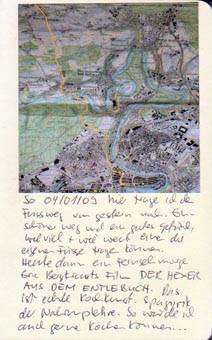 So 04/01/09 hier trage ich den
Fussweg von gestern nach. Ein
schöner Weg und ein gutes Gefühl,
wie viel + wie weit einen die
eigenen Füsse tragen können.
Heute dann im Fernsehen
Film DER HEXER
AUS DEM ENTLEBUCH. Das
ist echte Kochkunst. Spagyrik
der Naturlehre. So würde ich
auch gerne kochen können...